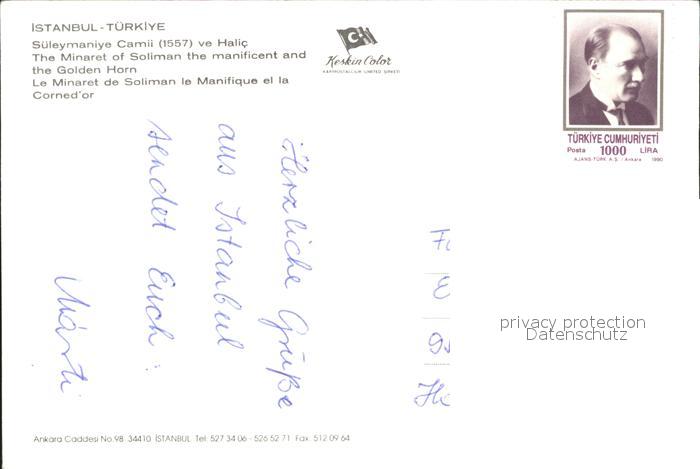 İSTANBUL - TÜRKİYE
Süleymaniye Camii (1557) ve Haliç
The Minaret of Soliman the manificent and
the Golden Horn
Le Minaret de Soliman le Manifique el la
Corned'or
Keskin Color
KARTPOSTALCILIK LIMITED ŞİRKETİ
TÜRKİYE CUMHURİYETİ
Posta 1000 LİRA
AJANS-TÜRK A.Ş. / Ankara 1990
Herzliche Grüße
aus Istanbul
sendet Euch:
privacy protection
Datenschutz
Ankara Caddesi No.98 34410 İSTANBUL Tel: 527 34 06 - 526 52 71 Fax. 512 09 64